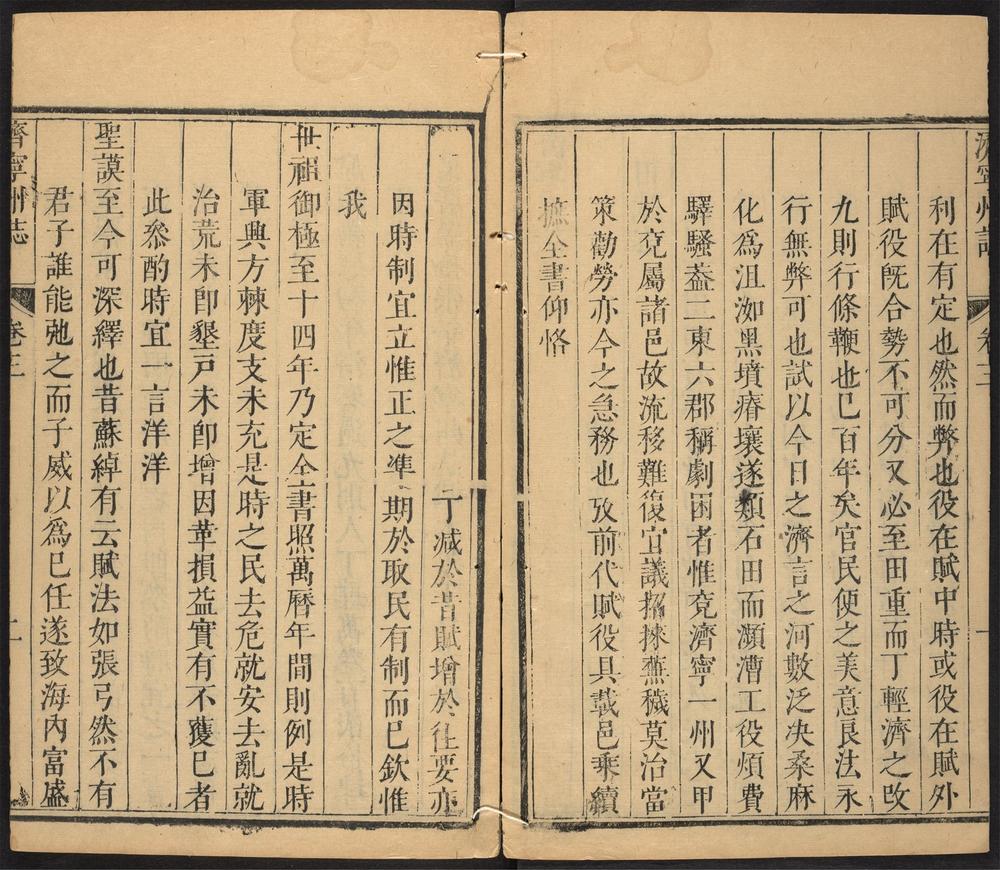 濟寧州誌 卷三 一
利在有定也然而弊也役在賦中時或役在賦外
賦役旣合勢不可分又必至田重而丁輕濟之改
九則行條鞭也巳百年矣官民便之美意良法永
行無弊可也試以今日之濟言之河數泛决桑麻
化爲沮洳黑墳瘠壤遂類石田而瀕漕工役煩費
驛騷葢二東六郡稱劇困者惟兖濟寧一州又甲
於兖屬諸邑故流移難復宜議招揀蕪穢莫治當
策勸勞亦今之急務也攷前代賦役具載邑乘續
摭全書仰恪
丁減於昔賦增於往要亦
因時制宜立惟正之準 期於取民有制而巳欽惟
我
世祖御極至十四年乃定全書照萬曆年間則例是時
軍興方棘度支未充是時之民去危就安去亂就
治荒未卽墾戸未卽增因革損益實有不獲巳者
此叅酌時宜一言洋洋
聖謨至今可深繹也昔蘇綽有云賦法如張弓然不有
君子誰能弛之而子威以爲巳任遂致海內富盛
濟寧州誌 卷三 二